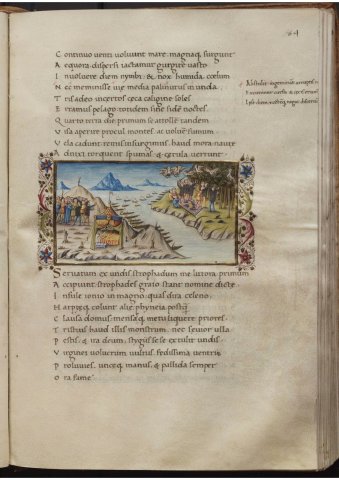 Continuo uenti uoluunt mare, magnaq; surgunt
Aequora. dispersi iactamur gurgite uasto
Inuoluere diem nymbi, & nox humida coelum
Nec meminisse uiae media palinurus in unda.
Tris adeo incertos ceca caligine soles
Erramus pelago. totidem sine sidere noctes.
Quarto terra die primum se attollere tandem
Visa aperire procul montes, ac uoluere fumum
Vela cadunt. remis insurgimus. haud mora nautae
Adnixi torquent spumas, & cerula uerrunt.
Seruatum ex undis strophadum me littora primum
Accipiunt. strophades graio stant nomine dictae
Insulae ionio in magno. quas dira celeno,
Harpyiaeq; colunt aliae. phyneia postq̃
Clausa domus. mensasq; metu liquere priores.
Tristius haud illis monstrum, nec seuior ulla
Pestis, & ira deum, stygiis sese extulit undis.
Virginei uolucrum uultus. fedissima uentris
Proluuies. uncaeq; manus, & pallida semper
Ora fame